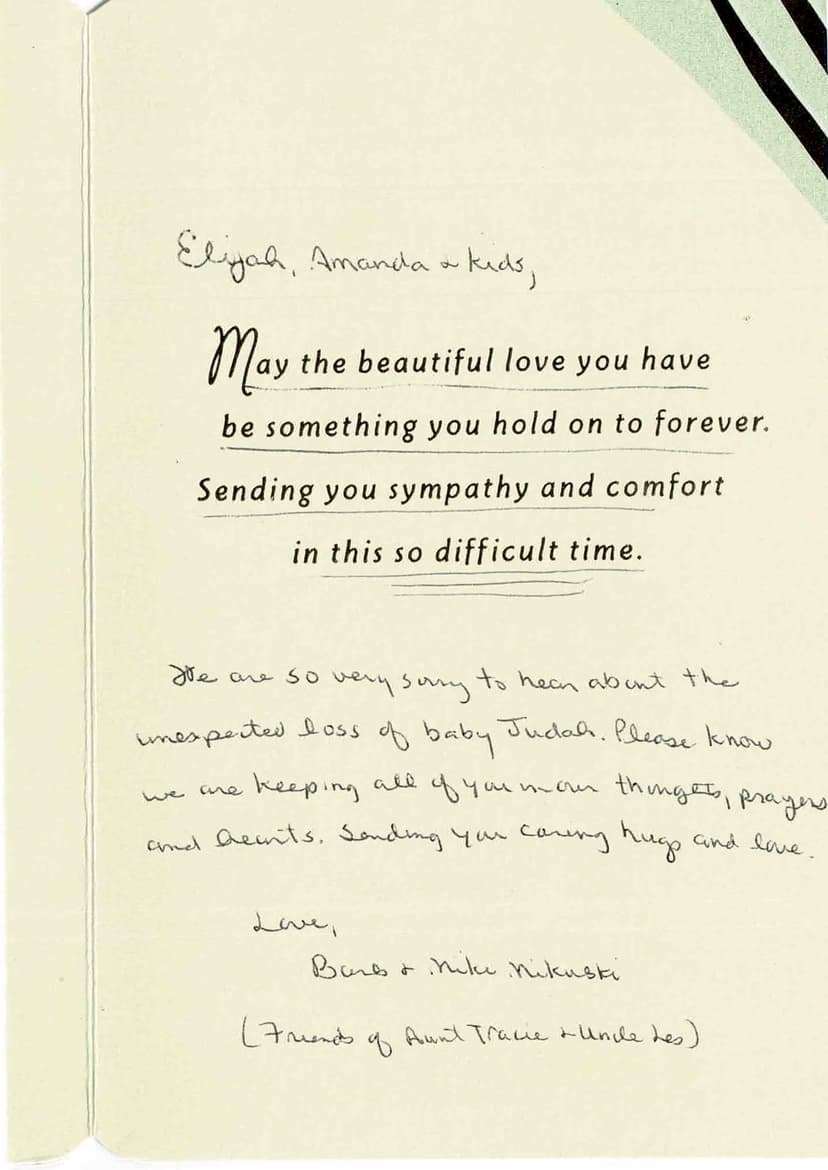 Elijah, Amanda & kids,
May the beautiful love you have
be something you hold on to forever.
Sending you sympathy and comfort
in this so difficult time.
We are so very sorry to hear about the
unexpected loss of baby Judah. Please know
we are keeping all of you in our thoughts, prayers
and hearts. Sending you caring hugs and love.
Love,
Barb & Mike
(Friends of Aunt Tracie & Uncle Les)